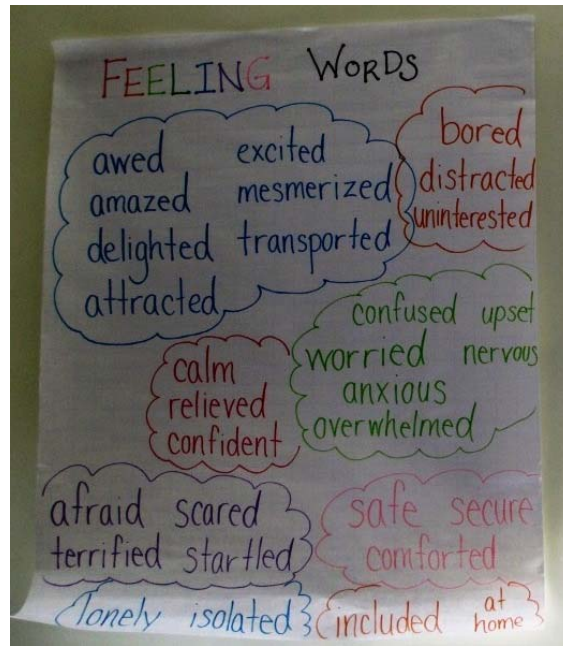 FEELING WORDS
awed excited
amazed mesmerized
delighted transported
attracted
bored
distracted
uninterested
confused upset
worried nervous
anxious
overwhelmed
calm
relieved
confident
afraid scared
terrified startled
safe secure
comforted
lonely isolated
included at home